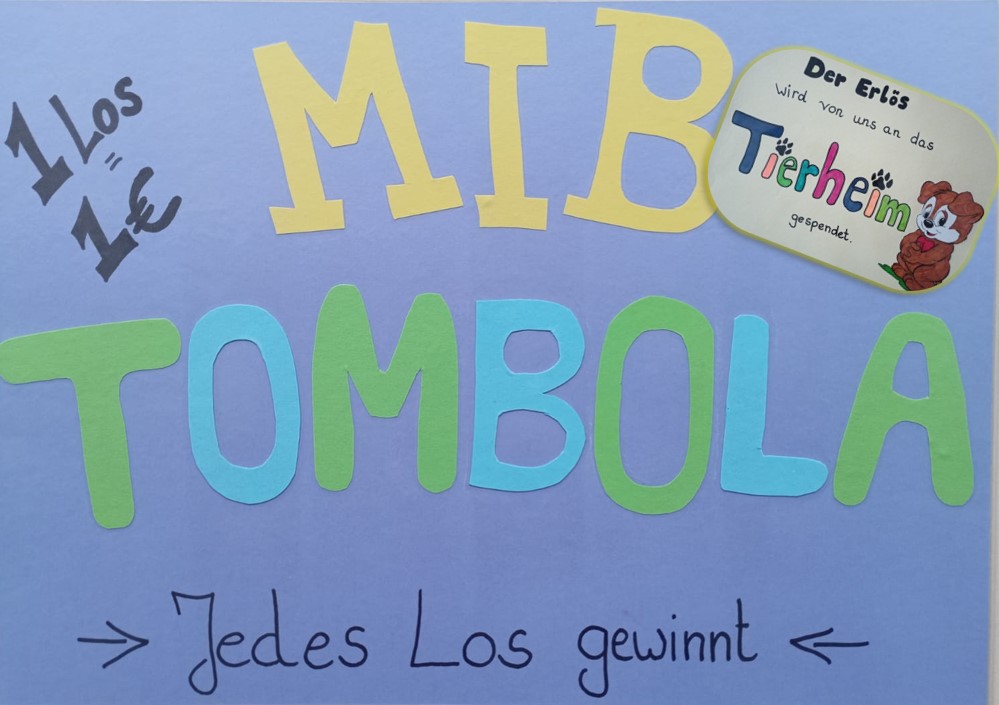 1 Los
=
1€
MIB
Der Erlös
wird von uns an das
Tierheim
gespendet.
TOMBOLA
→ Jedes Los gewinnt ←